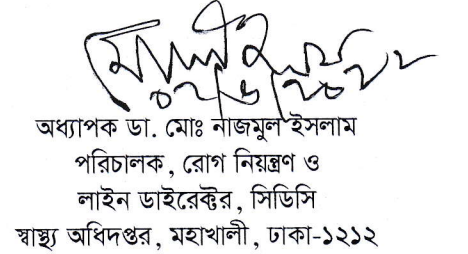 অধ্যাপক ডা. মোঃ নাজমুল ইসলাম
পরিচালক, রোগ নিয়ন্ত্রণ ও
লাইন ডাইরেক্টর, সিডিসি
স্বাস্থ্য অধিদপ্তর, মহাখালী, ঢাকা-১২১২